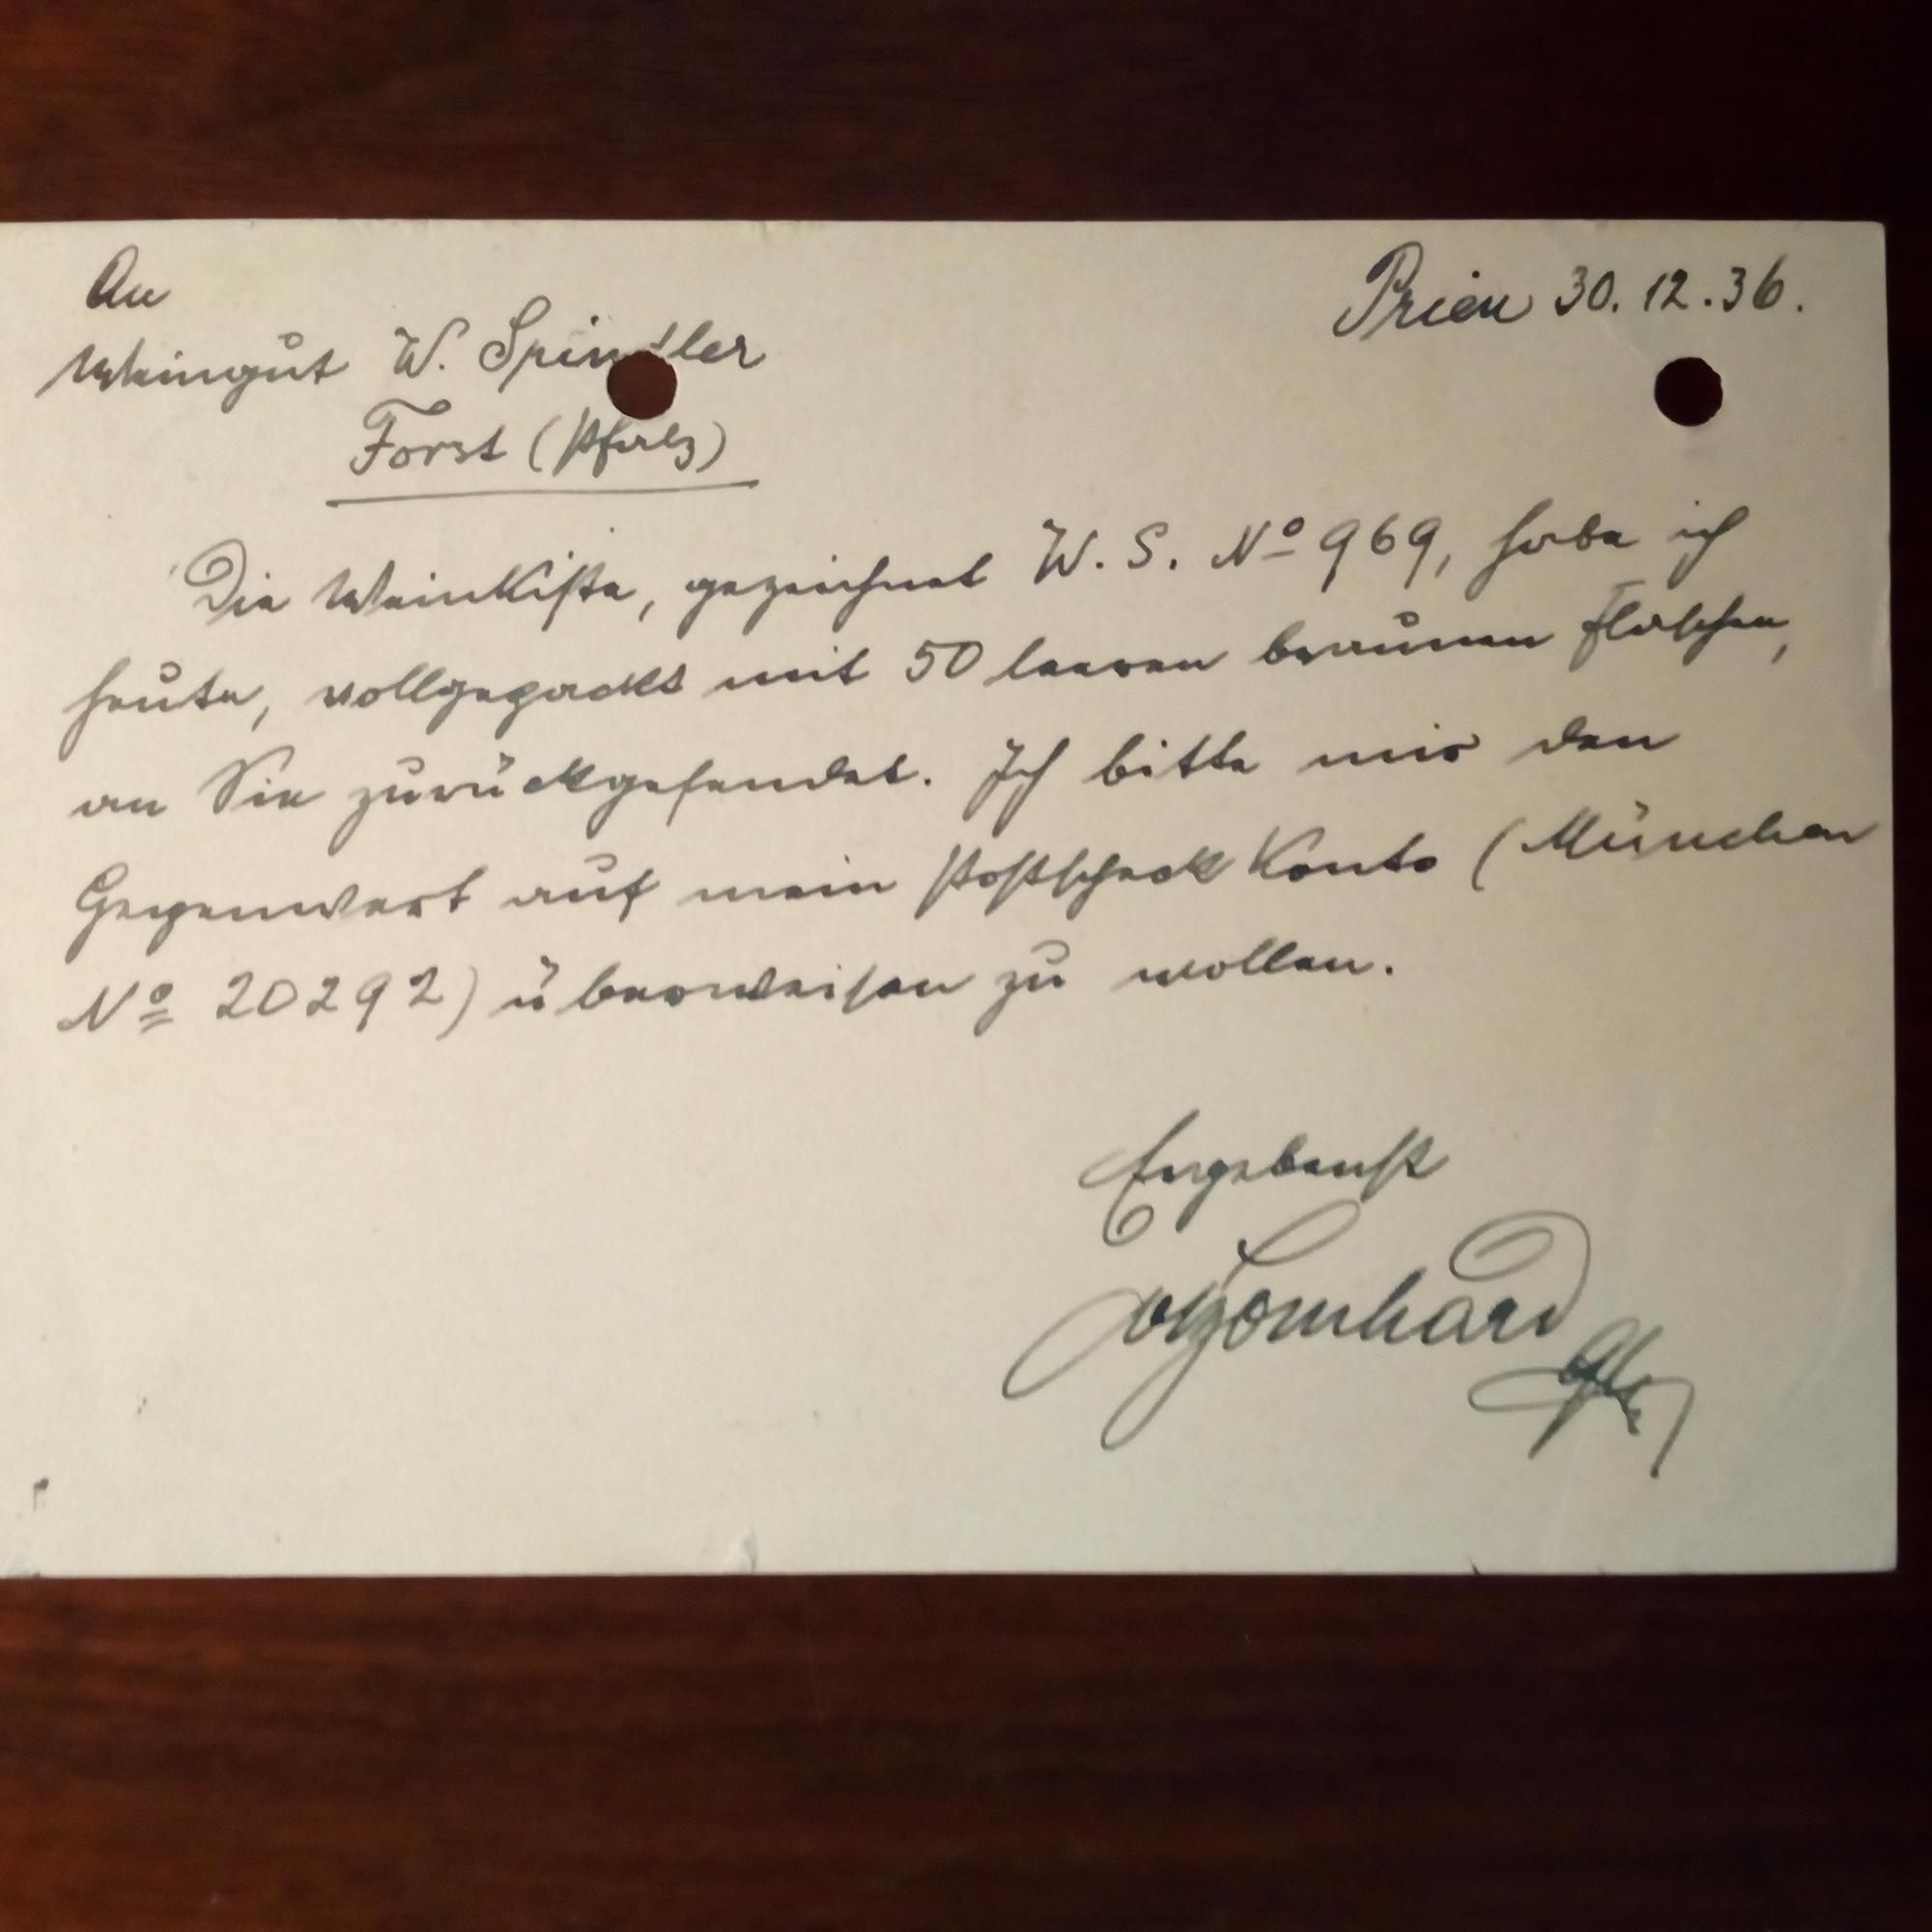 An
Prien 30.12.36.
Weingut W. Spindler
Forst (Pfalz)
Die Weinkiste, gezeichnet W. S. Nº 969, habe ich
heute, vollgepackt mit 50 leeren braunen Flaschen,
an Sie zurückgesendet. Ich bitte mir den
Gegenwert auf mein Postscheck Konto (München
Nº 20292) überweisen zu wollen.
Ergebenst